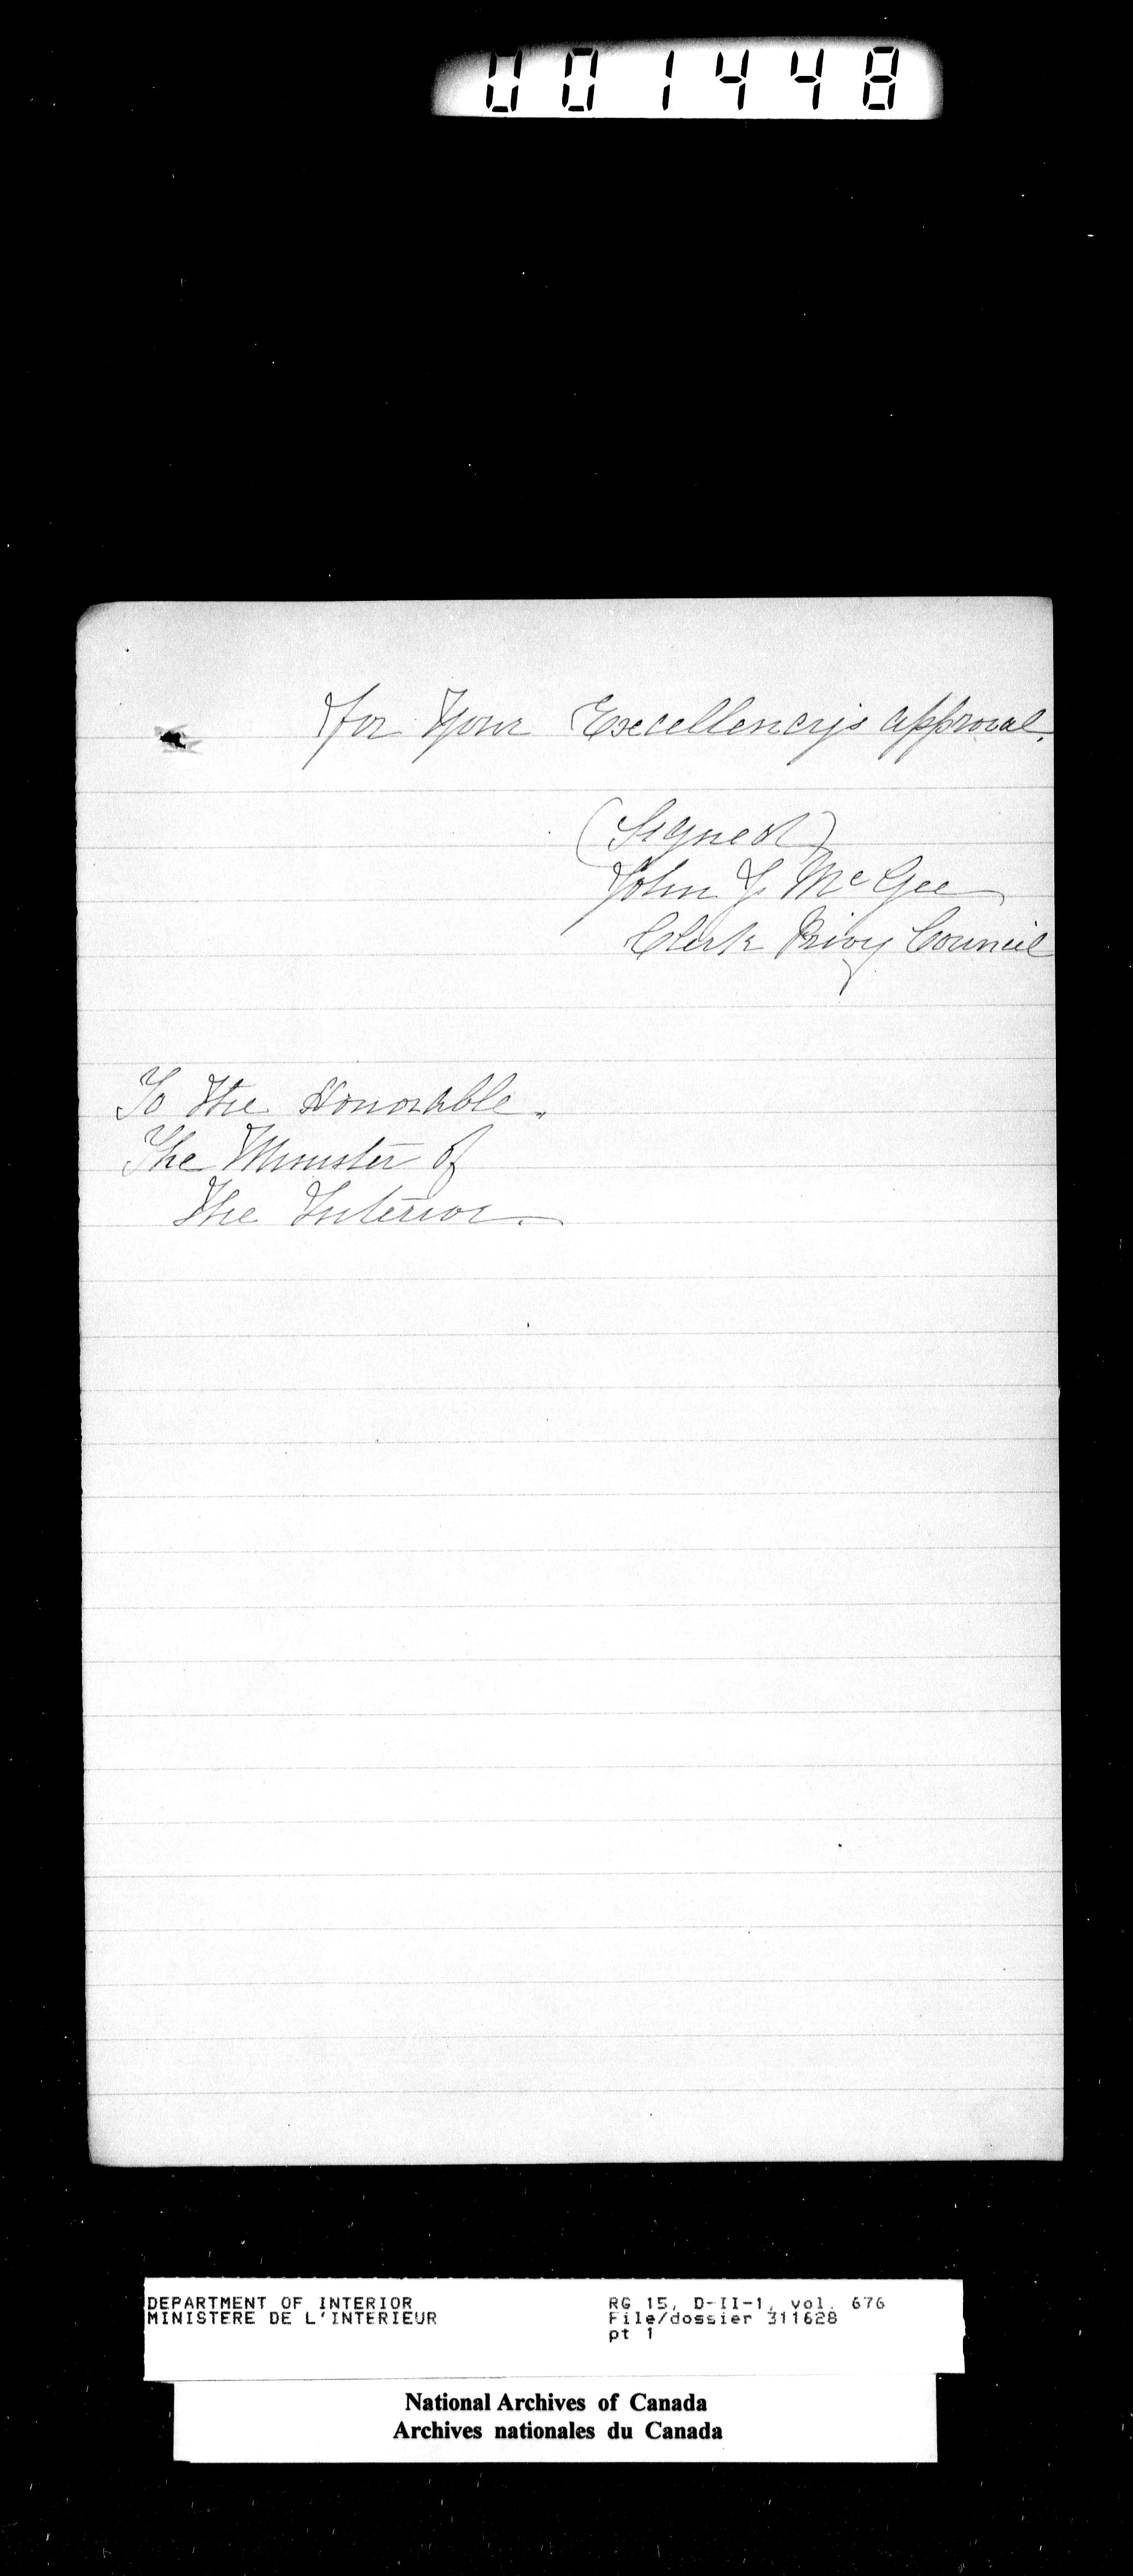 001448
for Your Excellency's approval.
(Signed)
John J. McGee
Clerk Privy Council
To the Honorable.
The Minister of
The Interior.
DEPARTMENT OF INTERIOR
MINISTERE DE L'INTERIEUR
RG 15, D-II-1, vol. 676
File/dossier 311628
pt 1
National Archives of Canada
Archives nationales du Canada